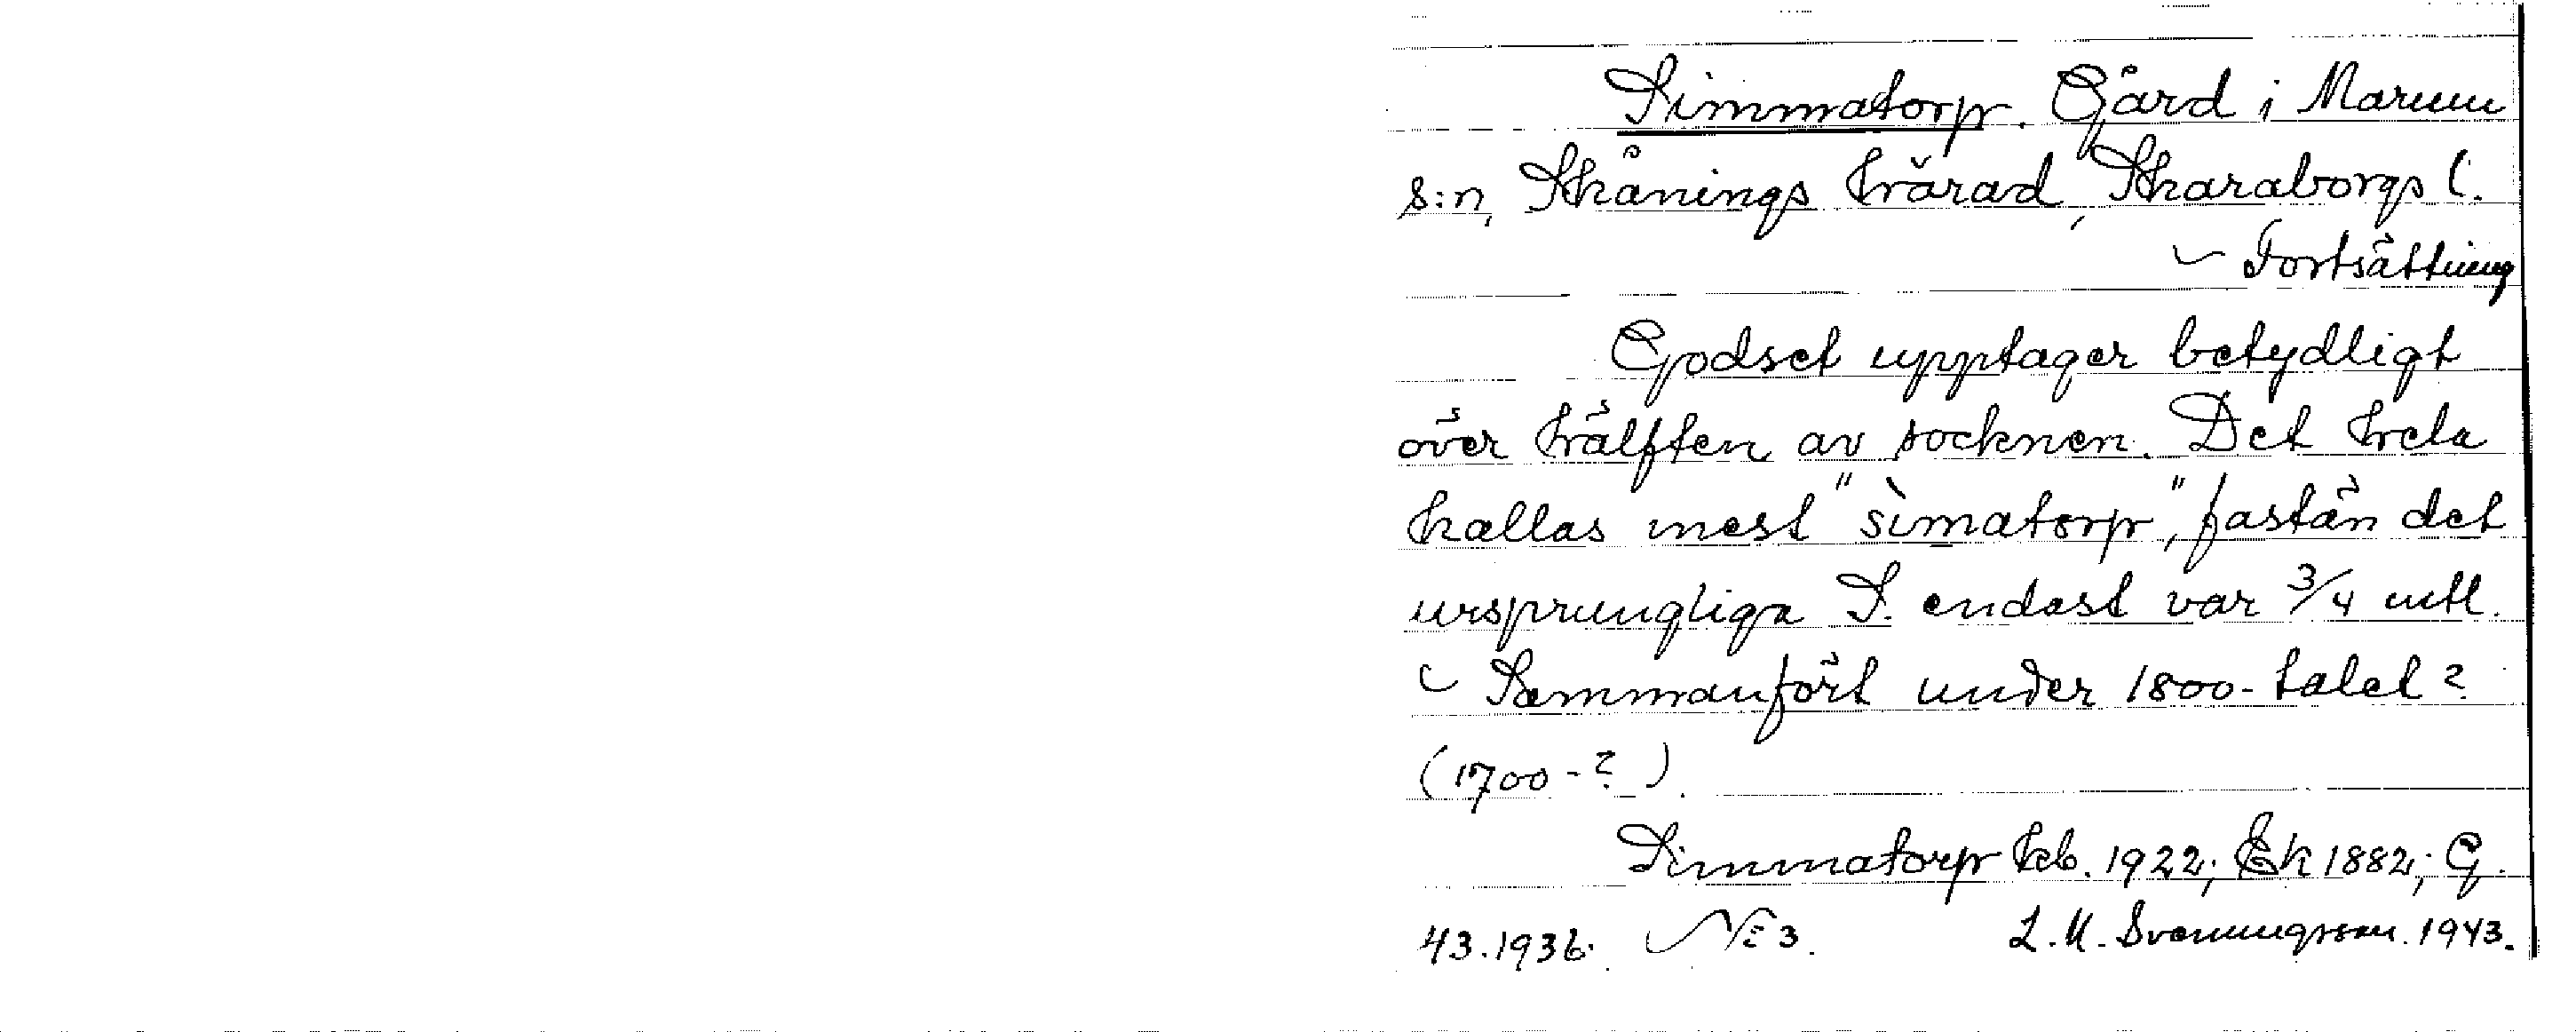 Simmatorp. Gård i Marum
s:n, Skånings härad, Skaraborgs l.
– Fortsättning
Godset upptager betydligt
över hälften av socknen. Det hela
kallas mest "sìmatorp", fastän det
ursprungliga S. endast var 3/4 mtl.
– Sammanfört under 1800-talet?
(1700-?).
Simmatorp kb. 1922; Ek 1882; G.
43.1936. NE 3. L. M. Svenungsson. 1943.